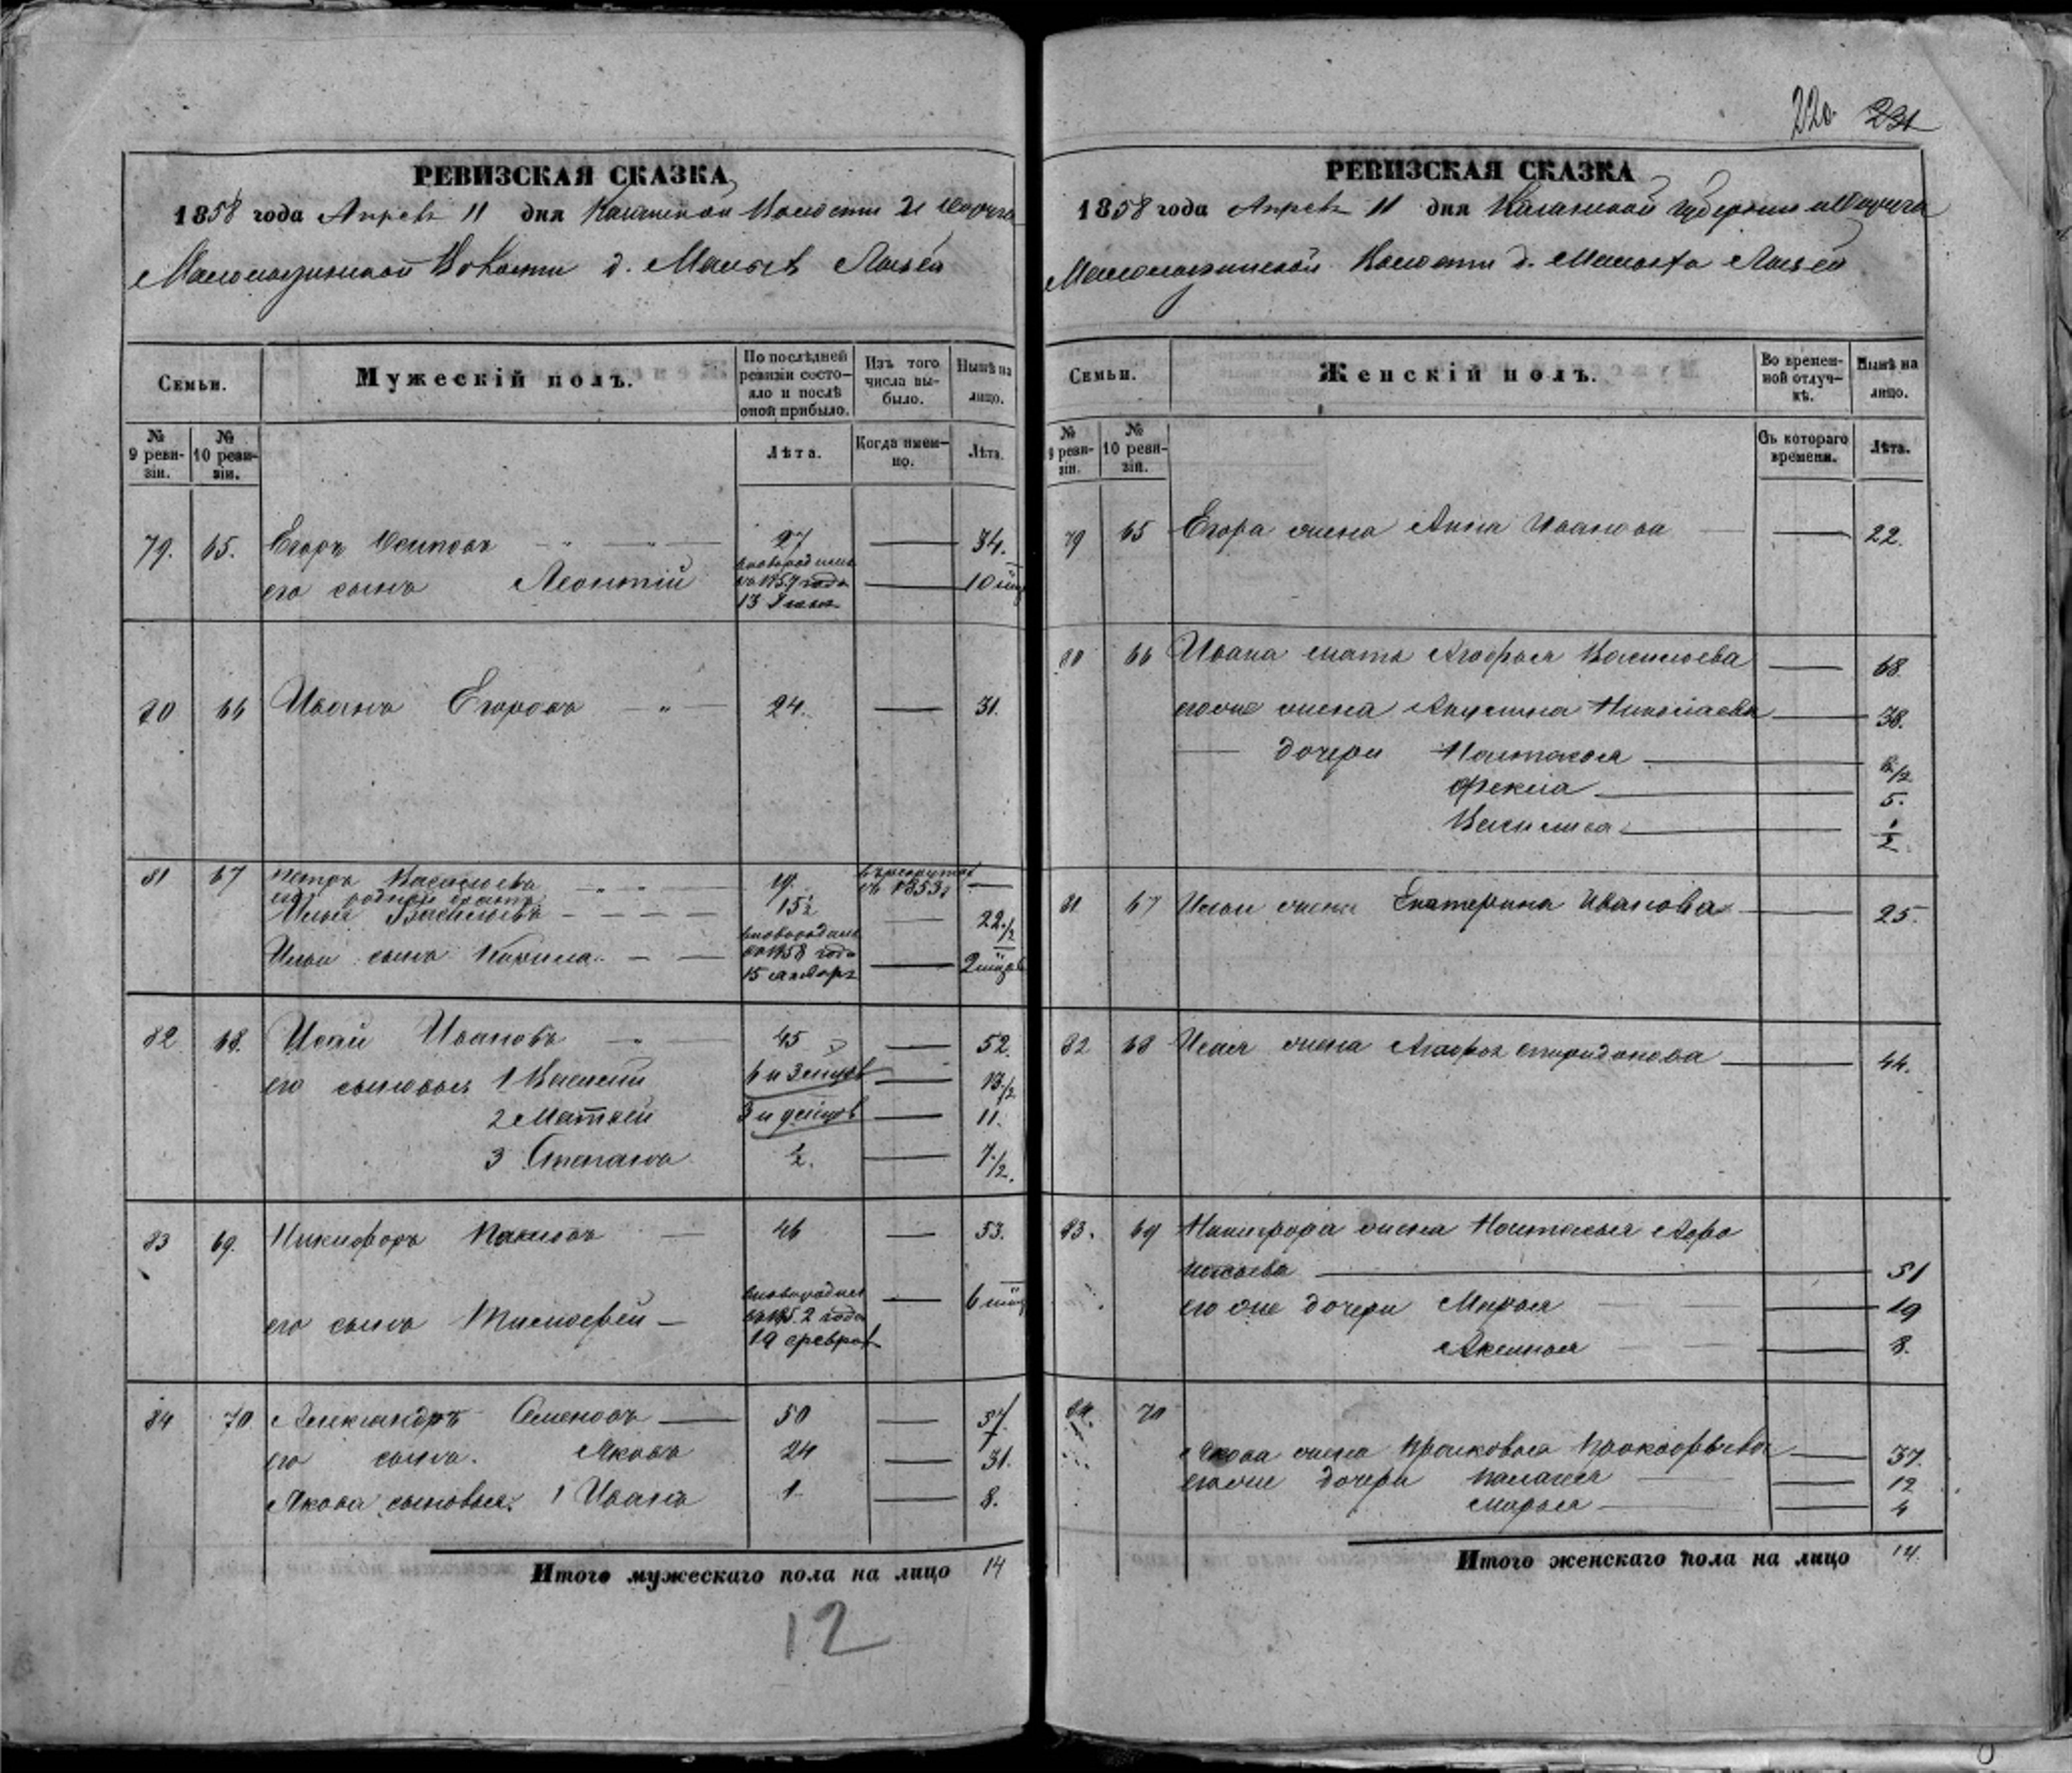 РЕВИЗСКАЯ СКАЗКА
1858 года Апреля 11 дня Казанской
волости д. Малыхъ
Семьи.
Мужескій полъ.
По послѣдней ревизіи состояло и послѣ оной прибыло.
Изъ того числа выбыло.
Нынѣ на лицо.
№ 9 ревизіи.
№ 10 ревизіи.
Лѣта.
Когда именно.
Лѣта.
79. 65. Егоръ Осиповъ 27 34.
его сынъ Леонтій новорожден. 1857 года 13 10
80 66 Иванъ Егоровъ 24. 31.
81 67 Петръ Васильевъ 19. въ рекруты въ 1853
его родной братъ
Илья Васильевъ 15 1/2 22 1/2
Ильи сынъ новорожден. 1858 года 15 января 2
82 68. Исай Ивановъ 45 52.
его сыновья 1 Василій 6 и 3 13 1/2
2 Матвѣй 3 и 9 11.
3 Степанъ 1/2. 7 1/2.
83 69. Никифоръ 46 53.
его сынъ Тимофей новорожден. 19 феврал 6
84 70 Александръ Семеновъ 50 57
его сынъ. Яковъ 24 31.
Якова сыновья. 1 Иванъ 1 8.
Итого мужескаго пола на лицо 14
12
220 231
РЕВИЗСКАЯ СКАЗКА
1858 года Апреля 11 дня Казанской губернии
волости д. Малыхъ
Семьи.
Женскій полъ.
Во временной отлучкѣ.
Нынѣ на лицо.
№ 9 ревизіи.
№ 10 ревизіи.
Съ котораго времени.
Лѣта.
79 65 Егора жена Анна Иванова 22.
80 66 Ивана мать Агафья Васильева 68.
его же жена Акулина Николаева 38.
дочери Наталья 1/2
Фекла 5.
Василиса 1/2
81 67 Ильи жена Екатерина Иванова 25.
82 68 Исая жена Агафья Спиридонова 44.
83. 69 Никифора жена Наталья Афо
насьева 51
его же дочери Марья 19
Аксинья 8.
84. 70
Якова жена Прасковья Прокофьева 37.
его же дочери Палагея 12
Марья 4
Итого женскаго пола на лицо 14.